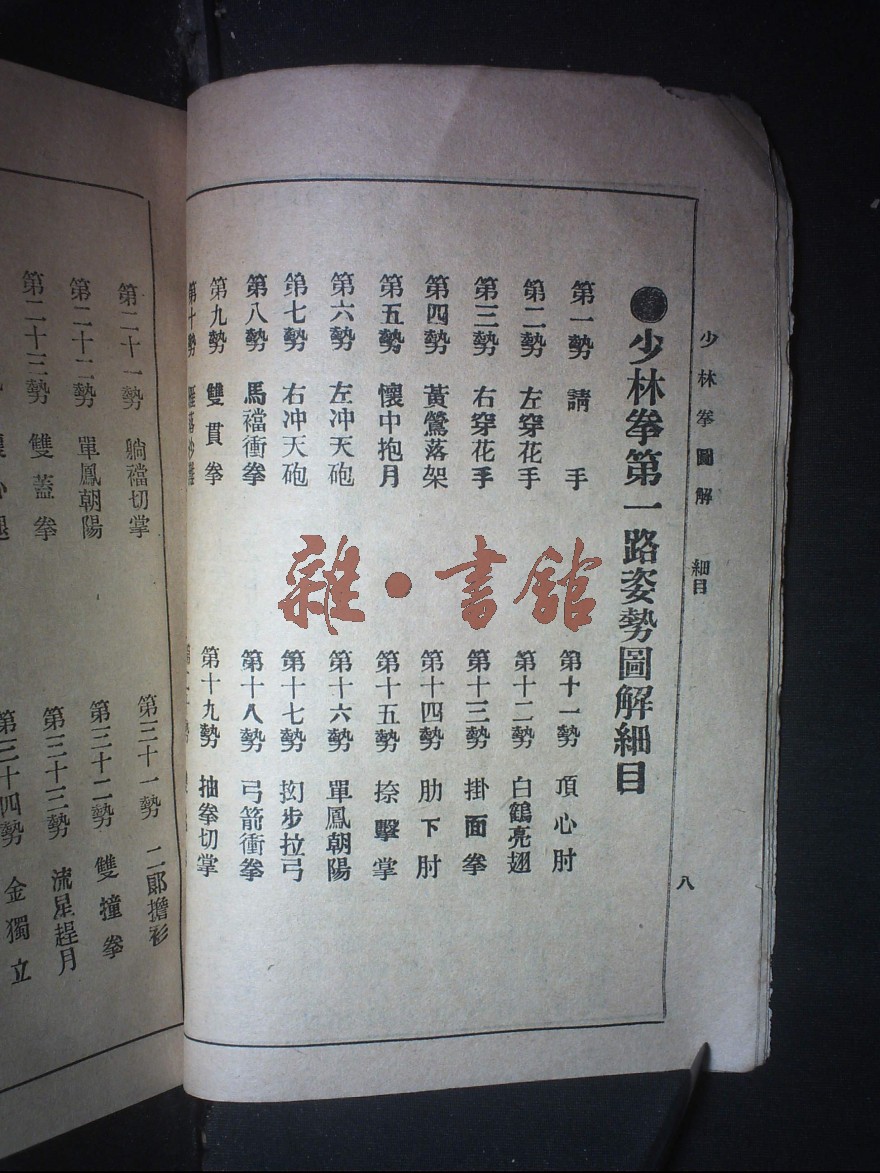 少林拳圖解 細目 八
少林拳第一路姿勢圖解細目
第一勢 請手
第二勢 左穿花手
第三勢 右穿花手
第四勢 黃鶯落架
第五勢 懷中抱月
第六勢 左冲天砲
第七勢 右冲天砲
第八勢 馬襠衝拳
第九勢 雙貫拳
第十勢
第十一勢 頂心肘
第十二勢 白鶴亮翅
第十三勢 掛面拳
第十四勢 肋下肘
第十五勢 捺擊掌
第十六勢 單鳳朝陽
第十七勢 抝步拉弓
第十八勢 弓箭衝拳
第十九勢 抽拳切掌
雜·書館
第二十一勢 躺襠切掌
第二十二勢 單鳳朝陽
第二十三勢 雙蓋拳
第三十一勢 二郎擔衫
第三十二勢 雙撞拳
第三十三勢 流星趕月
第三十四勢 金獨立